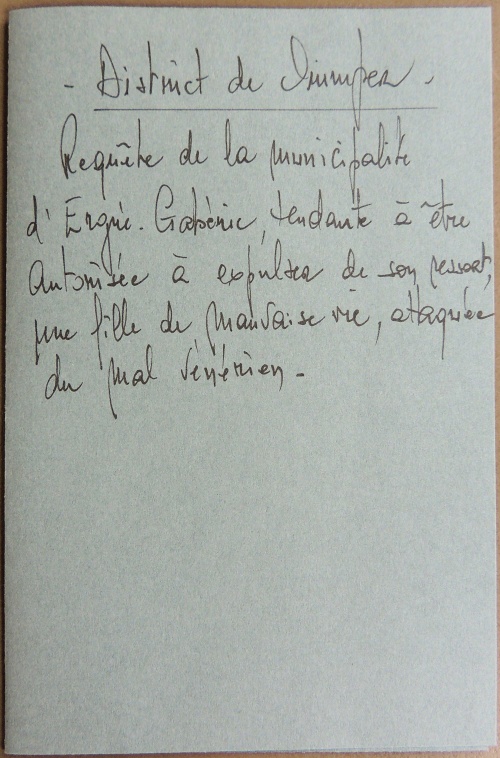 - District de Quimper -
Requête de la municipalité
d'Ergué-Gabéric, tendante à être
autorisée à expulser de son ressort,
une fille de mauvaise vie, attaquée
du mal vénérien -